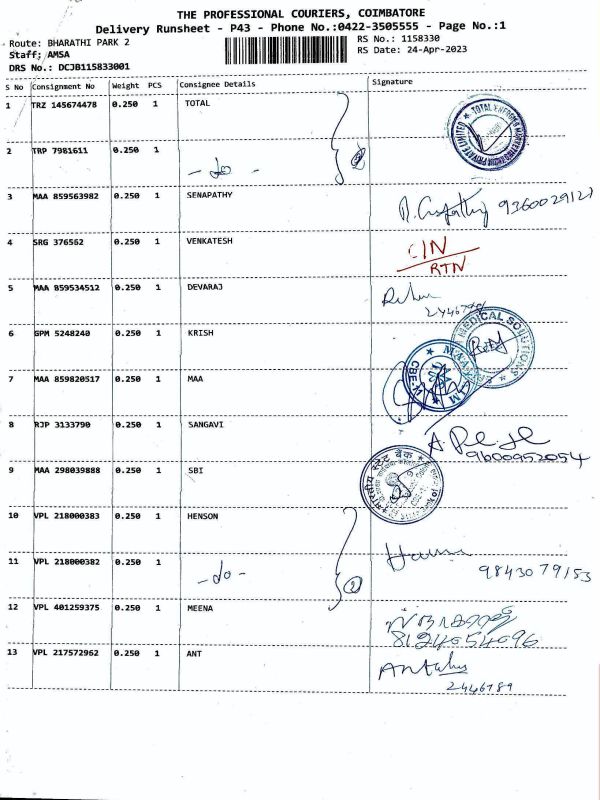 THE PROFESSIONAL COURIERS, COIMBATORE
Delivery Runsheet - P43 - Phone No.:0422-3505555 - Page No.:1
Route: BHARATHI PARK 2
RS No.: 1158330
Staff: AMSA
RS Date: 24-Apr-2023
DRS No.: DCJB115833001
S No Consignment No Weight PCS Consignee Details Signature
1 TRZ 145674478 0.250 1 TOTAL
2 TRP 7981611 0.250 1 -do-
3 MAA 859563982 0.250 1 SENAPATHY
4 SRG 376562 0.250 1 VENKATESH RTN
5 MAA 859534512 0.250 1 DEVARAJ
6 GPM 5248240 0.250 1 KRISH MEDICAL
7 MAA 859820517 0.250 1 MAA
8 RJP 3133790 0.250 1 SANGAVI 9600952054
9 MAA 298039888 0.250 1 SBI भारतीय स्टेट बैंक
10 VPL 218000383 0.250 1 HENSON
11 VPL 218000382 0.250 1 -do- 2 9843079153
12 VPL 401259375 0.250 1 MEENA 8124054096
13 VPL 217572962 0.250 1 ANT
2446789